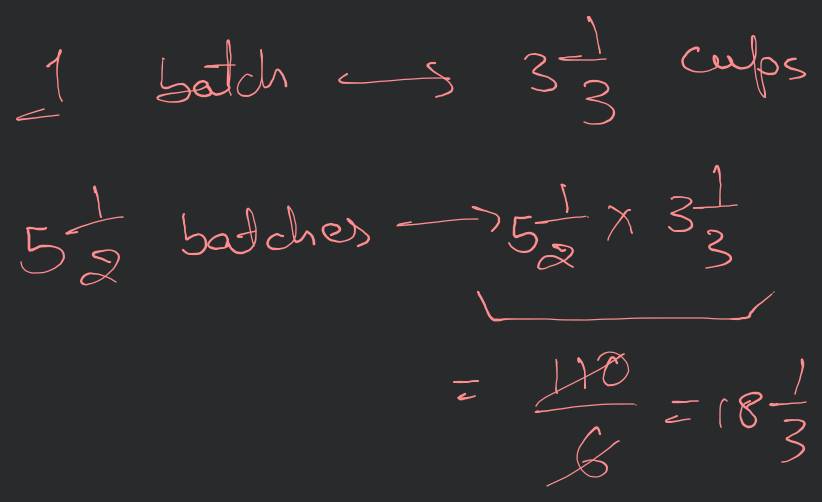 1 batch → 3 1/3 cups
5 1/2 batches → 5 1/2 × 3 1/3
= 110/6 = 18 1/3